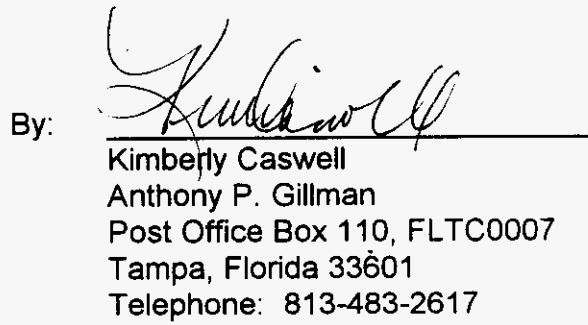 By:
Kimberly Caswell
Anthony P. Gillman
Post Office Box 110, FLTC0007
Tampa, Florida 33601
Telephone: 813-483-2617